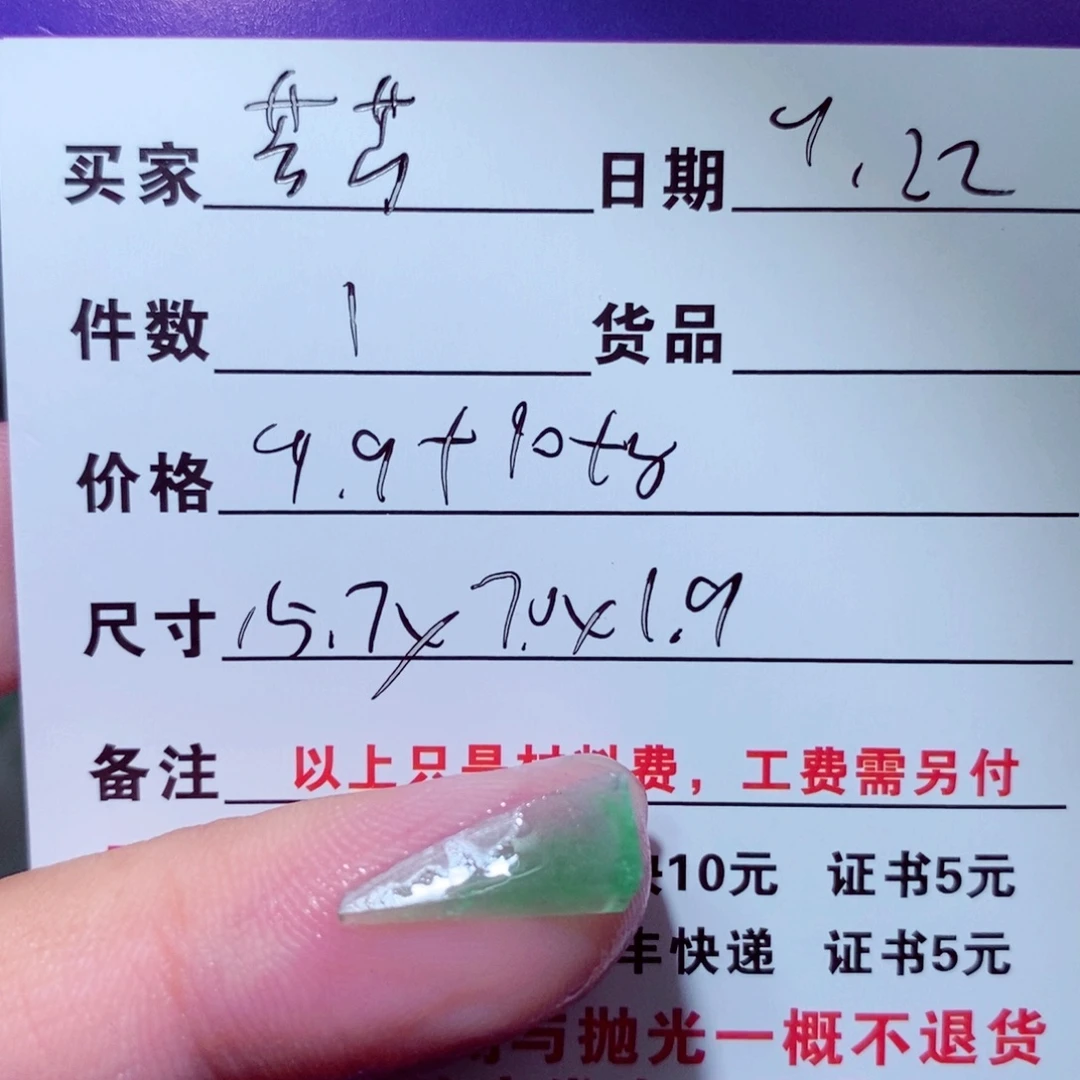 买家 芸芸 日期 9.22
件数 1 货品
价格 9.9+10+8
尺寸 15.7x7.0x1.9
备注 以上只是材料费，工费需另付
10元 证书5元
丰快递 证书5元
与抛光一概不退货